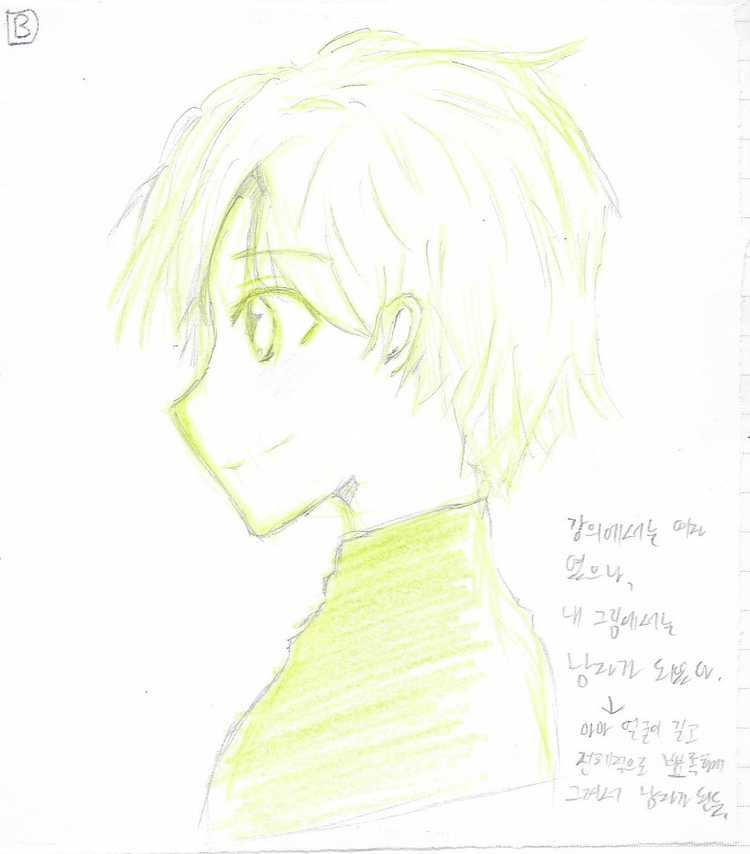 B
강의에서는 여자
였으나,
내 그림에서는
남자가 되었다.
↓
아마 얼굴이 길고
전체적으로 뾰족하게
그려서 남자가 된듯.